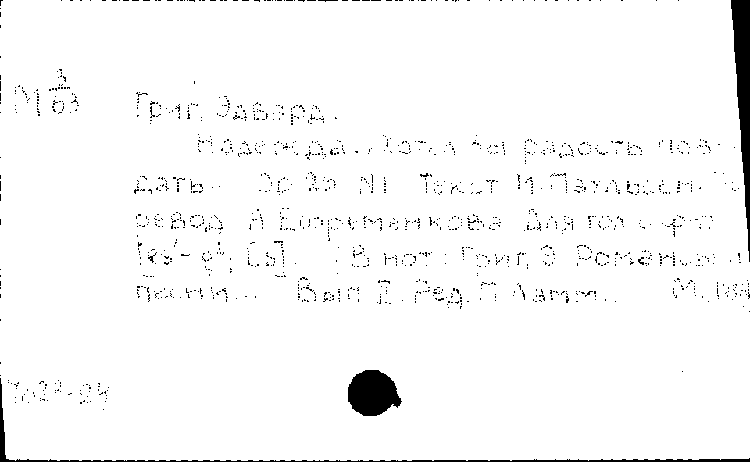 М 3/63
Григ, Эдвард.
Надежда. "Хотел бы радость пове-
дать... Ор 26 №1 Текст И. Паульсен. Пе
ревод А Ефременкова Для гол с ф-п
[es'- g²; Es]. (В нот: Григ, Э Романсы и
песни... Вып II. Ред. П Ламм.. М.,
7622-24